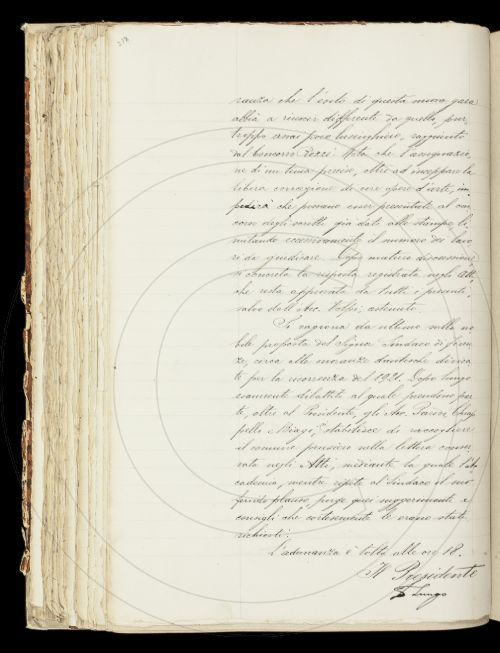 218
ranza che l'esito di questa nuova gara
abbia a riuscir differente da quello, pur
troppo assai poco lusinghiero, raggiunto
dal Concorso Rezzi. Nota che l'assegnazio
ne di un tema preciso, oltre ad inceppare la
libera concezione di vere opere d'arte, im
pedirà che possano esser presentati al con
corso degli scritti già dati alle stampe, li
mitando eccessivamente il numero dei lavo
ri da giudicare. Dopo matura discussione,
si concreta la risposta registrata negli Atti,
che resta approvata da tutti i presenti,
salvo dall'Acc. Volpi, astenuto.
Si ragiona da ultimo sulla no
bile proposta del Signor Sindaco di Firen
ze, circa alle onoranze dantesche
per la ricorrenza del 1921. Dopo lungo
esauriente dibattito al quale prendono par
te, oltre al Presidente, gli Acc. Chiap
pelli e Biagi, si stabilisce di raccogliere
il comune pensiero nella lettera conser
vata negli Atti, mediante la quale l'Ac
cademia, mentre ripete al Sindaco il suo
plauso, porge quei suggerimenti e
consigli che cortesemente le erano stati
richiesti.
L'adunanza è tolta alle ore 18.
Il Presidente
Lungo